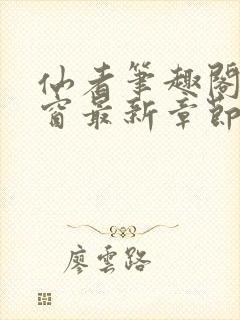 仙者筆趣閣
窗最新章節
廖雲路